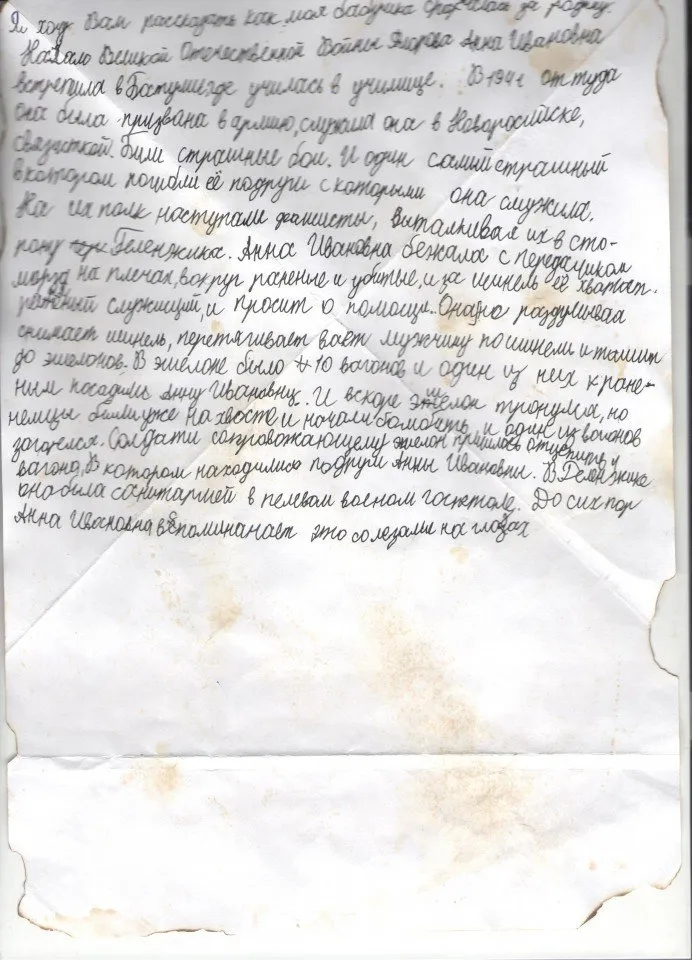 Я хочу Вам рассказать как моя бабушка сражалась за родину.
Начало Великой Отечественной Войны Анна Ивановна
встретила в Батуми, где училась в училище. В 1941 оттуда
она была призвана в армию, служила она в Новоросийске,
связисткой. Были страшные бои. И один самый страшный
в котором погибли её подруги с которыми она служила.
На их полк наступали фашисты, выталкивая их в сто-
рону Геленжика. Анна Ивановна бежала с передатчиком
на плечах, вокруг раненые и убитые, и за шинель её хватает
раненый служищий, и просит о помощи. Она раздумывая
снимает шинель, перетягивает мужчину по шинели и тащит
до эшелонов. В эшелоне было 10 вагонов и один из них к ране-
ным посадили Анну Ивановну. И вскоре эшелон тронулся, но
немцы были уже на хвосте и начали бомбить, и один из вагонов
загорелся. Солдати сопровожающему эшелон пришлось отцепить
вагон, в котором находились подруги Анны Ивановны. В Геленжике
она была санитаркой в полевом военом госпетале. До сих пор
Анна Ивановна вспоминанает это со слезами на глазах